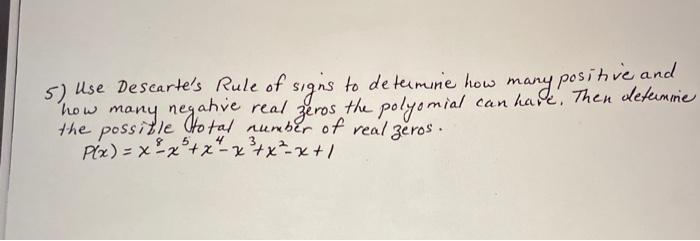 5) Use Descarte's Rule of signs to determine how many positive and
how many negative real zeros the polyomial can have. Then determine
the possible total number of real zeros.
P(x) = x⁸-x⁵+x⁴-x³+x²-x+1